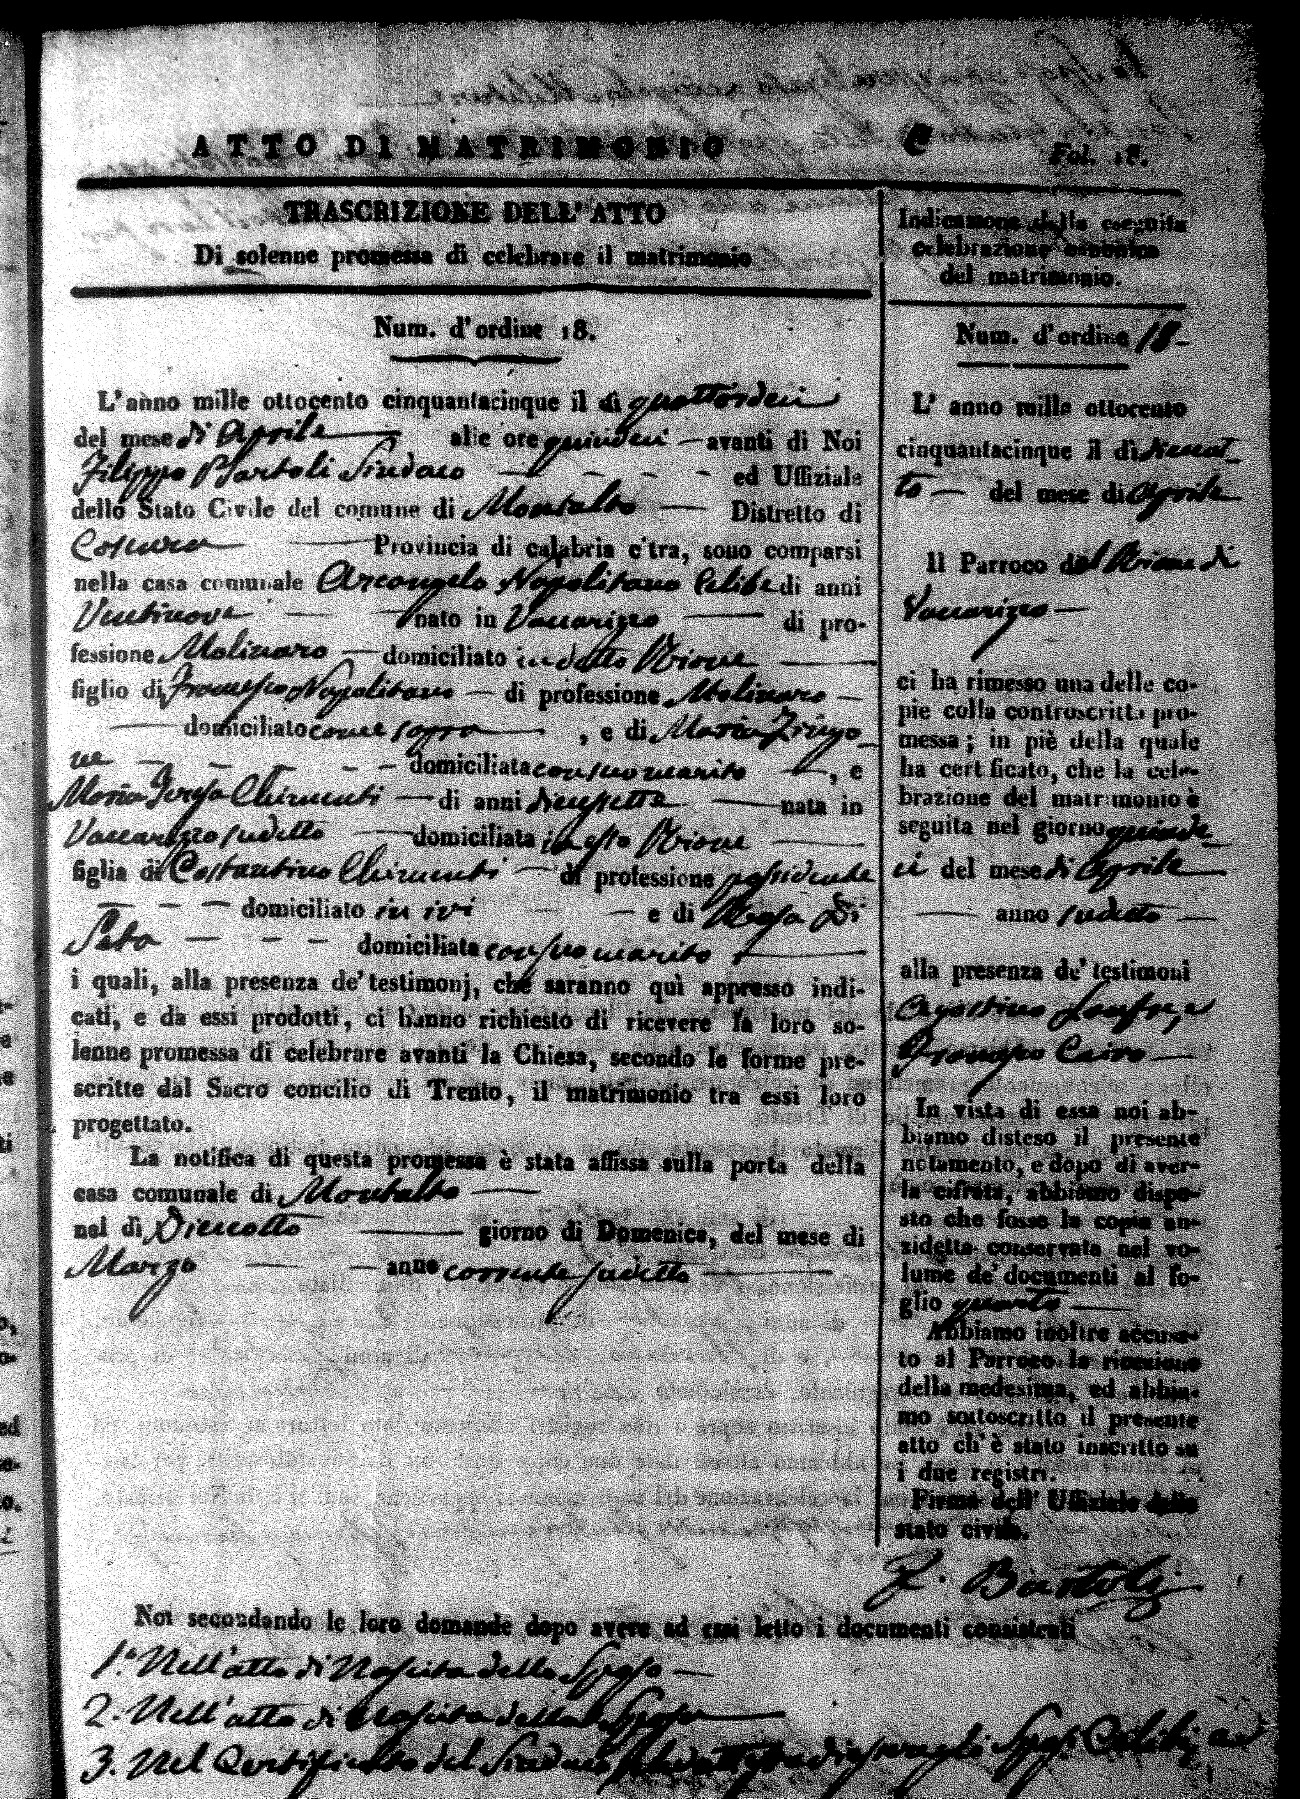 ATTO DI MATRIMONIO
Fol. 18.
TRASCRIZIONE DELL' ATTO
Di solenne promessa di celebrare il matrimonio
Num. d'ordine 18.
L' anno mille ottocento cinquantacinque il dì quattordeci
del mese di Aprile alle ore quindeci avanti di Noi
Filippo Bartoli Sindaco ed Uffiziale
dello Stato Civile del comune di Montalto Distretto di
Cosenza Provincia di calabria citra, sono comparsi
nella casa comunale Arcangelo Napolitano Celibe di anni
Ventinove nato in Vaccarizzo di pro-
fessione Molinaro domiciliato in detto Rione
figlio di Francesco Napolitano di professione Molinaro
domiciliato come sopra , e di Maria
domiciliata con suo marito , e
Maria Teresa Chimenti di anni diecisette nata in
Vaccarizzo sudetto domiciliata in esso Rione
figlia di Costantino Chimenti di professione possidente
domiciliato in ivi e di Rosa Di
Seta domiciliata con suo marito
i quali, alla presenza de' testimonj, che saranno quì appresso indi-
cati, e da essi prodotti, ci hanno richiesto di ricevere la loro so-
lenne promessa di celebrare avanti la Chiesa, secondo le forme pre-
scritte dal Sacro concilio di Trento, il matrimonio tra essi loro
progettato.
La notifica di questa promessa è stata affissa sulla porta della
casa comunale di Montalto
nel dì Dieciotto giorno di Domenica, del mese di
Marzo anno corrente sudetto
Indicazione della seguita
celebrazione canonica
del matrimonio.
Num. d'ordine 18
L' anno mille ottocento
cinquantacinque il dì
del mese di Aprile
Il Parroco del Rione di
Vaccarizzo
ci ha rimesso una delle co-
pie colla controscritta pro-
messa; in piè della quale
ha certificato, che la cele-
brazione del matrimonio è
seguita nel giorno quinde
ci del mese di Aprile
anno sudetto
alla presenza de' testimoni
Agostino
Francesco Cairo
In vista di essa noi ab-
biamo disteso il presente
notamento, e dopo di aver-
la cifrata, abbiamo dispo-
sto che fosse la copia an-
zidetta conservata nel vo-
lume de' documenti al fo-
glio quarto
Abbiamo inoltre accusa-
to al Parroco la ricezione
della medesima, ed abbia-
mo sottoscritto il presente
atto ch' è stato inscritto su
i due registri.
Firma dell' Uffiziale dello
stato civile.
F. Bartoli
Noi secondando le loro domande dopo avere ad essi letto i documenti consistenti
1.° Nell'atto di Nascita dello Sposo
2. Nell'atto di Nascita della Sposa
3. Nel Certificato del Sindaco Sposi Celibi, ed